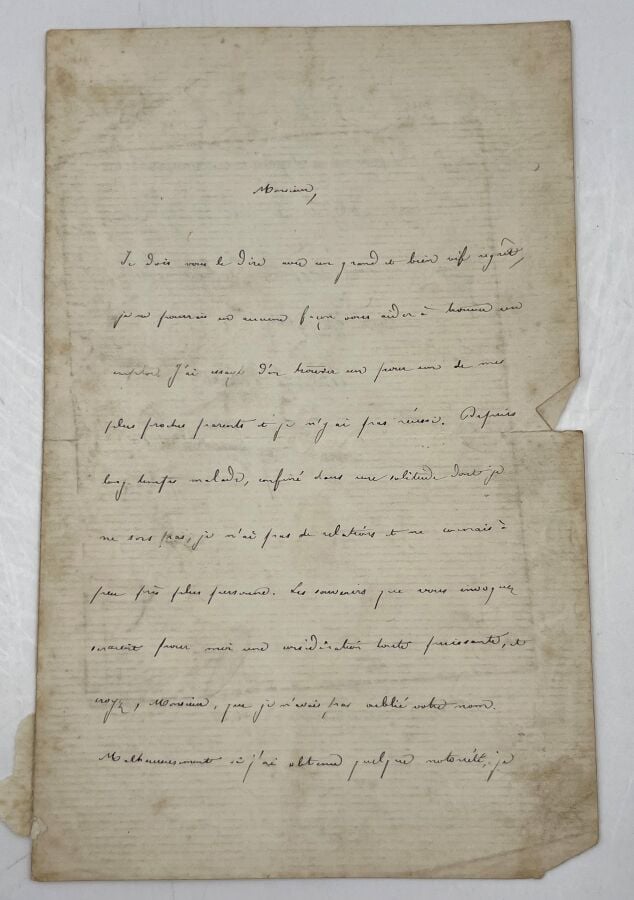 Monsieur,
Je dois vous le dire avec un grand et bien vif regrêt,
je ne pourrais en aucune façon vous aider à trouver un
emploi. J'ai essayé d'en trouver un pour un de mes
plus proches parents et je n'y ai pas réussi. Depuis
long temps malade, confiné dans une solitude dont je
ne sors pas, je n'ai pas de relations et ne connais à
peu près plus personne. Les souvenirs que vous invoquez
seraient pour moi une considération toute puissante, et
croyez, Monsieur, que je n'avais pas oublié votre nom.
Malheureusement si j'ai obtenu quelque notoriété, je